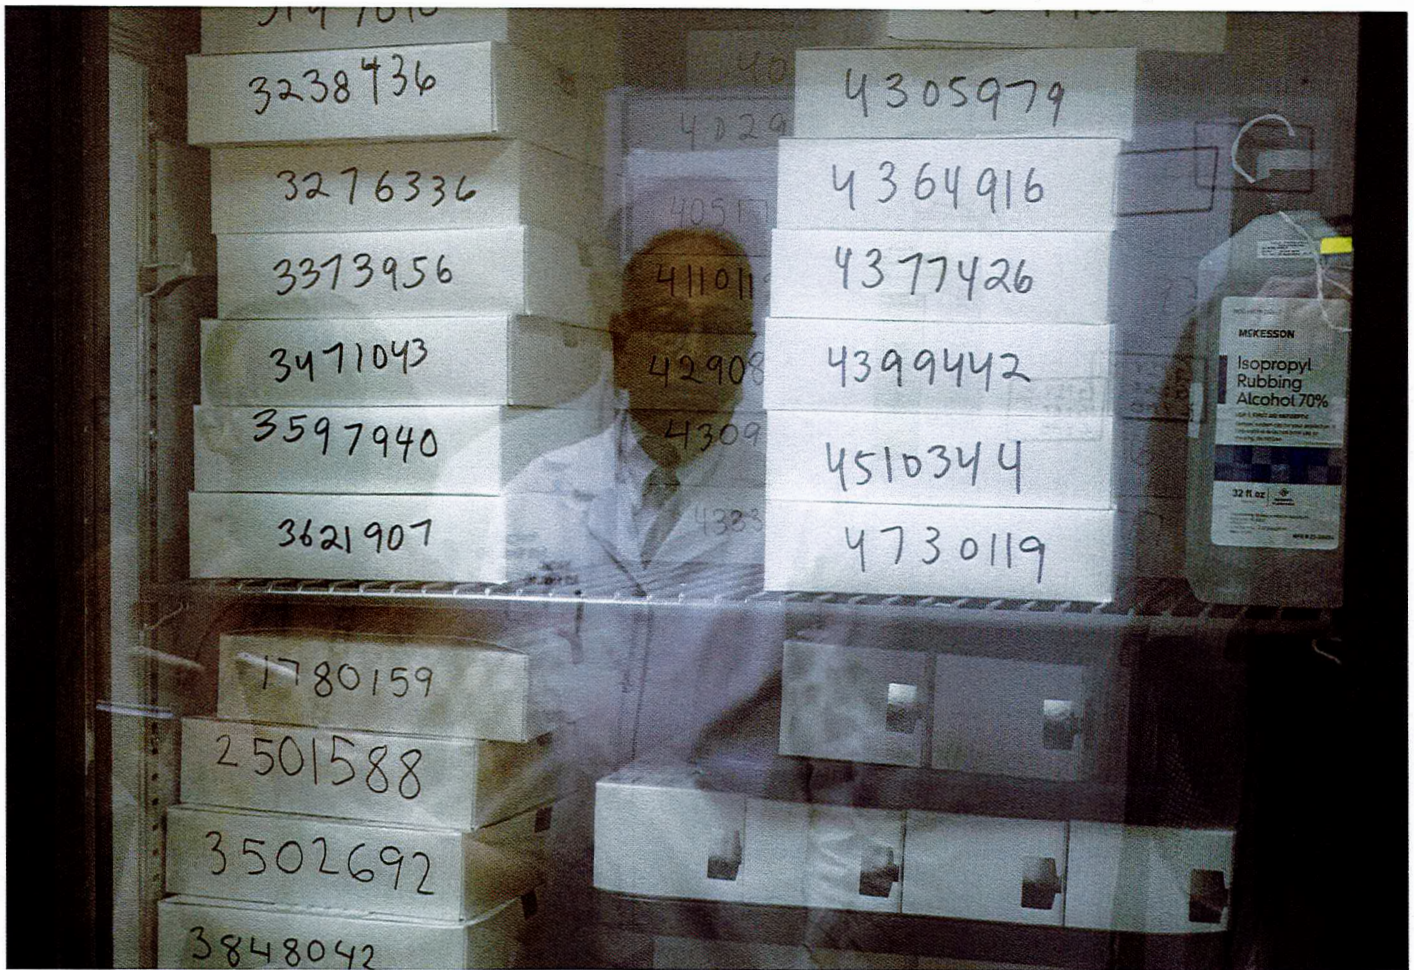 3238436
3276336
3373956
3471043
3597940
3621907
1780159
2501588
3502692
3848042
4029
4051
411011
42908
4309
4333
4305979
4364916
4377426
4399442
4510344
4730119
MCKESSON
Isopropyl
Rubbing
Alcohol 70%
32 fl oz